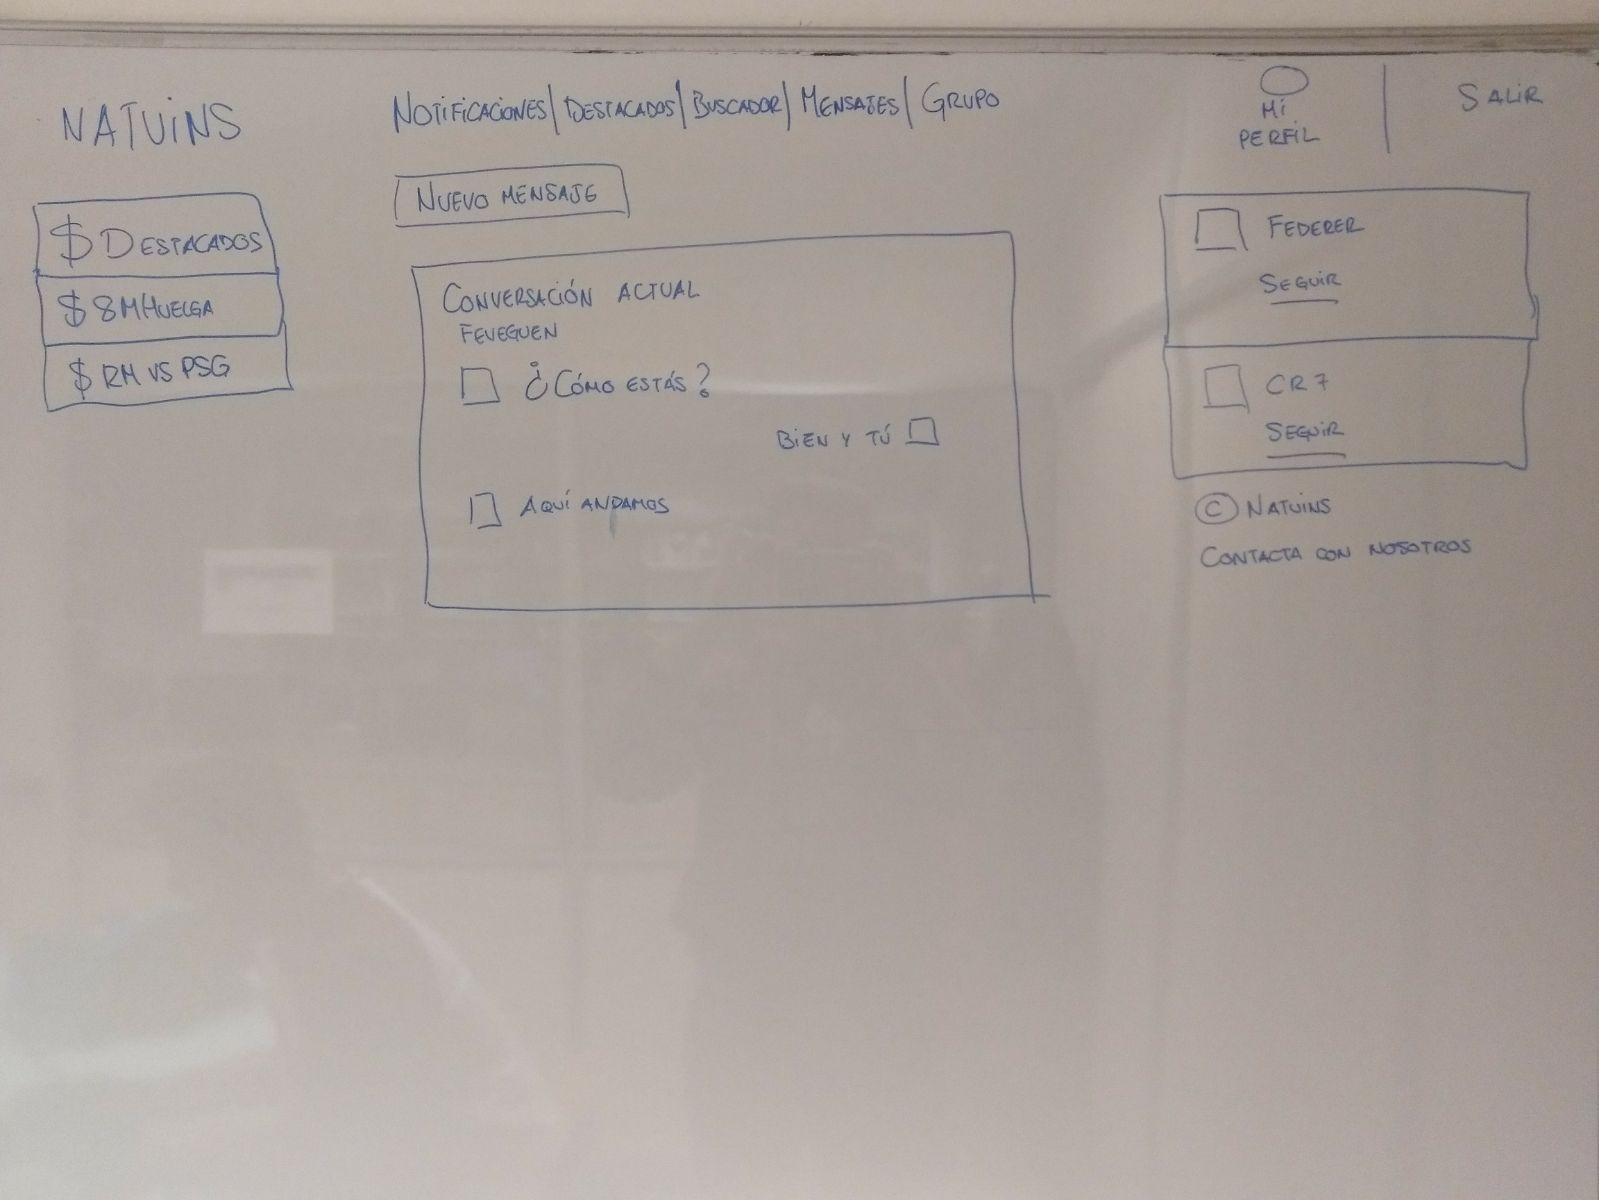 NATUINS
NOTIFICACIONES | DESTACADOS | BUSCADOR | MENSAJES | GRUPO
MI
PERFIL
SALIR
NUEVO MENSAJE
$ DESTACADOS
$ 8MHUELGA
$ RM VS PSG
CONVERSACIÓN ACTUAL
FEVEGUEN
¿CÓMO ESTÁS?
BIEN Y TÚ
AQUÍ ANDAMOS
FEDERER
SEGUIR
CR7
SEGUIR
© NATUINS
CONTACTA CON NOSOTROS